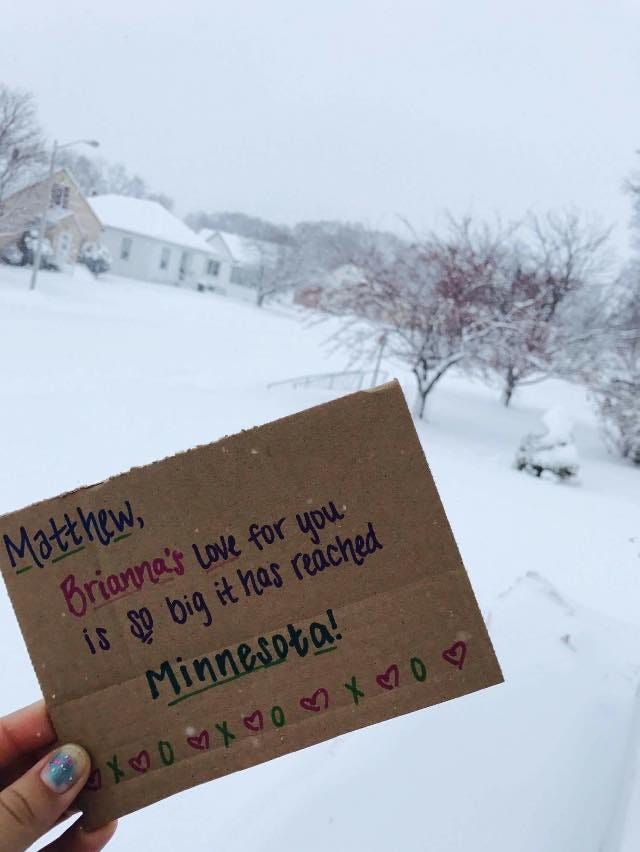 Matthew,
Brianna's love for you
is so big it has reached
Minnesota!
♡ X ♡ O ♡ X ♡ O ♡ X ♡ O ♡